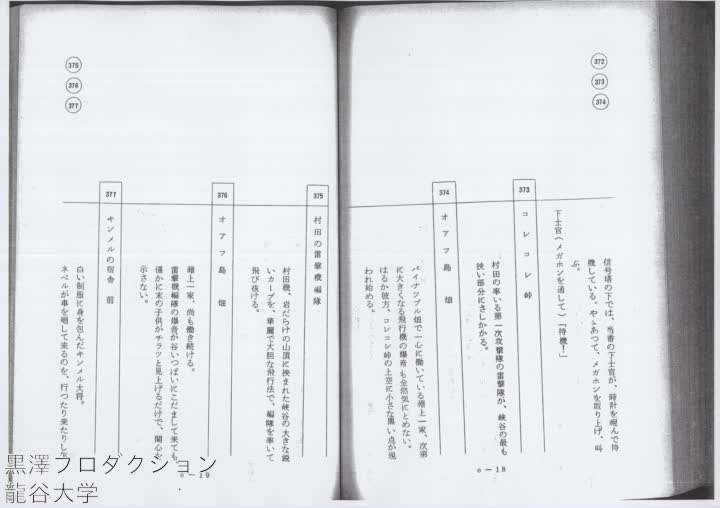 372
373
374
信号塔の下では、当番の下士官が、時計を睨んで待
機している。やゝあつて、メガホンを取り上げ、叫
ぶ。
下士官(メガホンを通して)「待機!」
373 コレコレ峠
村田の率いる第一次攻撃隊の雷撃隊が、峡谷の最も
狭い部分にさしかかる。
374 オアフ島 畑
パイナツプル畑で一心に働いている 上一家、次第
に大きくなる飛行機の爆音も全然気にとめない。
はるか彼方、コレコレ峠の上空に小さな黒い点が現
われ始める。
e-18
375
376
377
375 村田の雷撃機編隊
村田機、岩だらけの山頂に挟まれた峡谷の大きな鋭
いカーブを、華麗で大胆な飛行法で、編隊を率いて
飛び抜ける。
376 オアフ島 畑
上一家、尚も働き続ける。
雷撃機編隊の爆音が谷いつぱいにこだまして来ても
僅かに末の子供がチラツと見上げるだけで、関心を
示さない。
377 キンメルの宿舎 前
白い制服に身を包んだキンメル大将。
ネベルが車を廻して来るのを、行つたり来たりし
e-19
黒澤プロダクション
龍谷大学